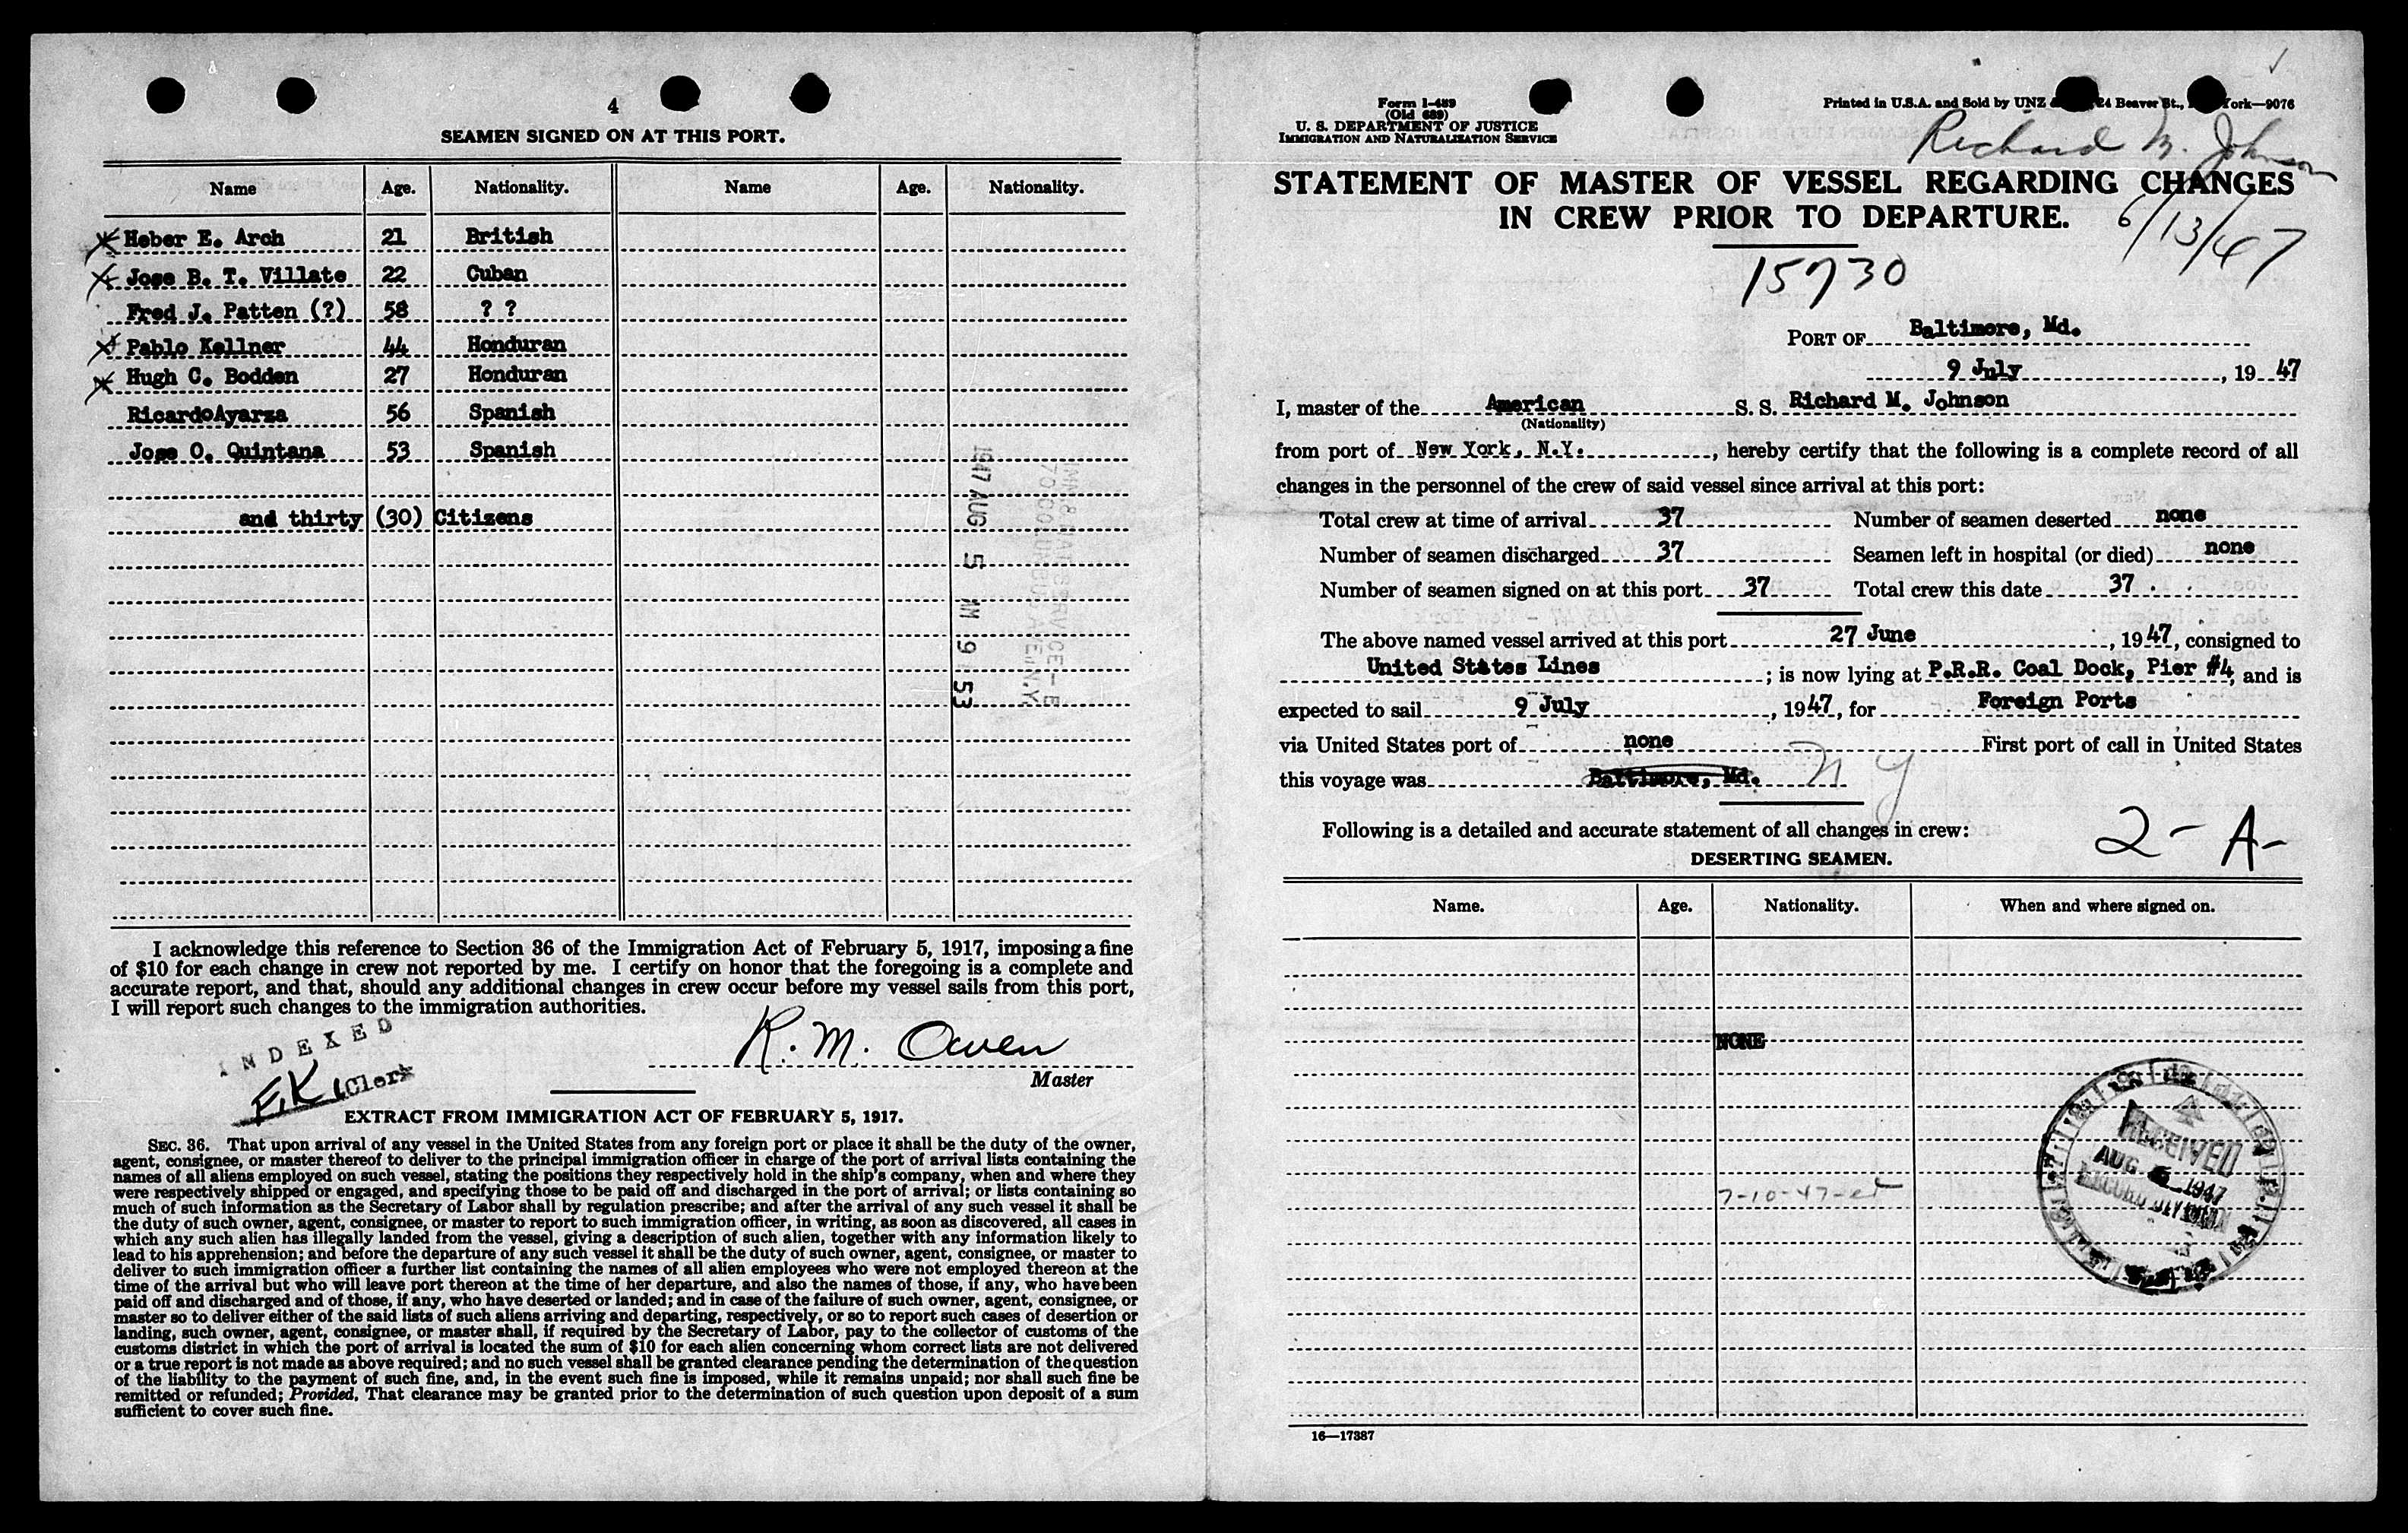 4
SEAMEN SIGNED ON AT THIS PORT.
Name Age. Nationality. Name Age. Nationality.
Heber E. Arch 21 British
Jose B. T. Villate 22 Cuban
Fred J. Patten (?) 58 ? ?
Pablo Kellner 44 Honduran
Hugh C. Bodden 27 Honduran
RicardoAyarza 56 Spanish
Jose O. Quintana 53 Spanish
and thirty (30) Citizens
1947 AUG 5 AM 9 53
70 COLUMBUS AVE., N.Y.
I acknowledge this reference to Section 36 of the Immigration Act of February 5, 1917, imposing a fine
of $10 for each change in crew not reported by me. I certify on honor that the foregoing is a complete and
accurate report, and that, should any additional changes in crew occur before my vessel sails from this port,
I will report such changes to the immigration authorities.
INDEXED
E.K. (Clerk
R. M. Owen
Master
EXTRACT FROM IMMIGRATION ACT OF FEBRUARY 5, 1917.
SEC. 36. That upon arrival of any vessel in the United States from any foreign port or place it shall be the duty of the owner,
agent, consignee, or master thereof to deliver to the principal immigration officer in charge of the port of arrival lists containing the
names of all aliens employed on such vessel, stating the positions they respectively hold in the ship's company, when and where they
were respectively shipped or engaged, and specifying those to be paid off and discharged in the port of arrival; or lists containing so
much of such information as the Secretary of Labor shall by regulation prescribe; and after the arrival of any such vessel it shall be
the duty of such owner, agent, consignee, or master to report to such immigration officer, in writing, as soon as discovered, all cases in
which any such alien has illegally landed from the vessel, giving a description of such alien, together with any information likely to
lead to his apprehension; and before the departure of any such vessel it shall be the duty of such owner, agent, consignee, or master to
deliver to such immigration officer a further list containing the names of all alien employees who were not employed thereon at the
time of the arrival but who will leave port thereon at the time of her departure, and also the names of those, if any, who have been
paid off and discharged and of those, if any, who have deserted or landed; and in case of the failure of such owner, agent, consignee, or
master so to deliver either of the said lists of such aliens arriving and departing, respectively, or so to report such cases of desertion or
landing, such owner, agent, consignee, or master shall, if required by the Secretary of Labor, pay to the collector of customs of the
customs district in which the port of arrival is located the sum of $10 for each alien concerning whom correct lists are not delivered
or a true report is not made as above required; and no such vessel shall be granted clearance pending the determination of the question
of the liability to the payment of such fine, and, in the event such fine is imposed, while it remains unpaid; nor shall such fine be
remitted or refunded; Provided, That clearance may be granted prior to the determination of such question upon deposit of a sum
sufficient to cover such fine.
Form I-489
(Old 689)
U. S. DEPARTMENT OF JUSTICE
IMMIGRATION AND NATURALIZATION SERVICE
Printed in U.S.A. and Sold by UNZ 24 Beaver St., York—9076
Richard M. Johnson
STATEMENT OF MASTER OF VESSEL REGARDING CHANGES
IN CREW PRIOR TO DEPARTURE.
6/13/47
15730
PORT OF Baltimore, Md.
9 July, 1947
I, master of the American S. S. Richard M. Johnson
(Nationality)
from port of New York, N.Y., hereby certify that the following is a complete record of all
changes in the personnel of the crew of said vessel since arrival at this port:
Total crew at time of arrival 37 Number of seamen deserted none
Number of seamen discharged 37 Seamen left in hospital (or died) none
Number of seamen signed on at this port 37 Total crew this date 37
The above named vessel arrived at this port 27 June, 1947, consigned to
United States Lines; is now lying at P.R.R. Coal Dock, Pier #4, and is
expected to sail 9 July, 1947, for Foreign Ports
via United States port of none First port of call in United States
this voyage was Baltimore, Md. N Y
Following is a detailed and accurate statement of all changes in crew:
2- A-
DESERTING SEAMEN.
Name. Age. Nationality. When and where signed on.
NONE
RECEIVED
AUG 1947
RECORD DIVISION
7-10-47-et
16—17387